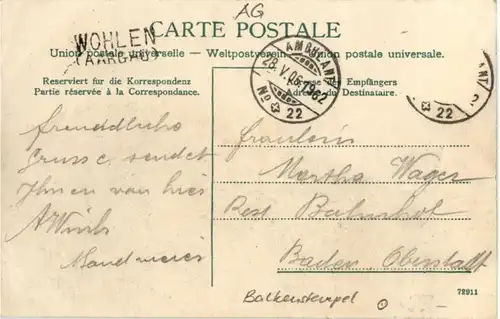 AG
CARTE POSTALE
WOHLEN
(AARGAU)
Union postale universelle – Weltpostverein – Union postale universale.
AMBULANT
28.V.06.-1962
No 22
ANT
2
22
Reserviert für die Korrespondenz
Partie réservée à la Correspondance.
Adresse des Empfängers
Adresse du Destinataire.
Freundliche
Grüsse sendet
Ihnen von hier
Fräulein
Martha Wager
Rest. Bahnhof
Baden, Oberstadt
72911
Balkenstempel